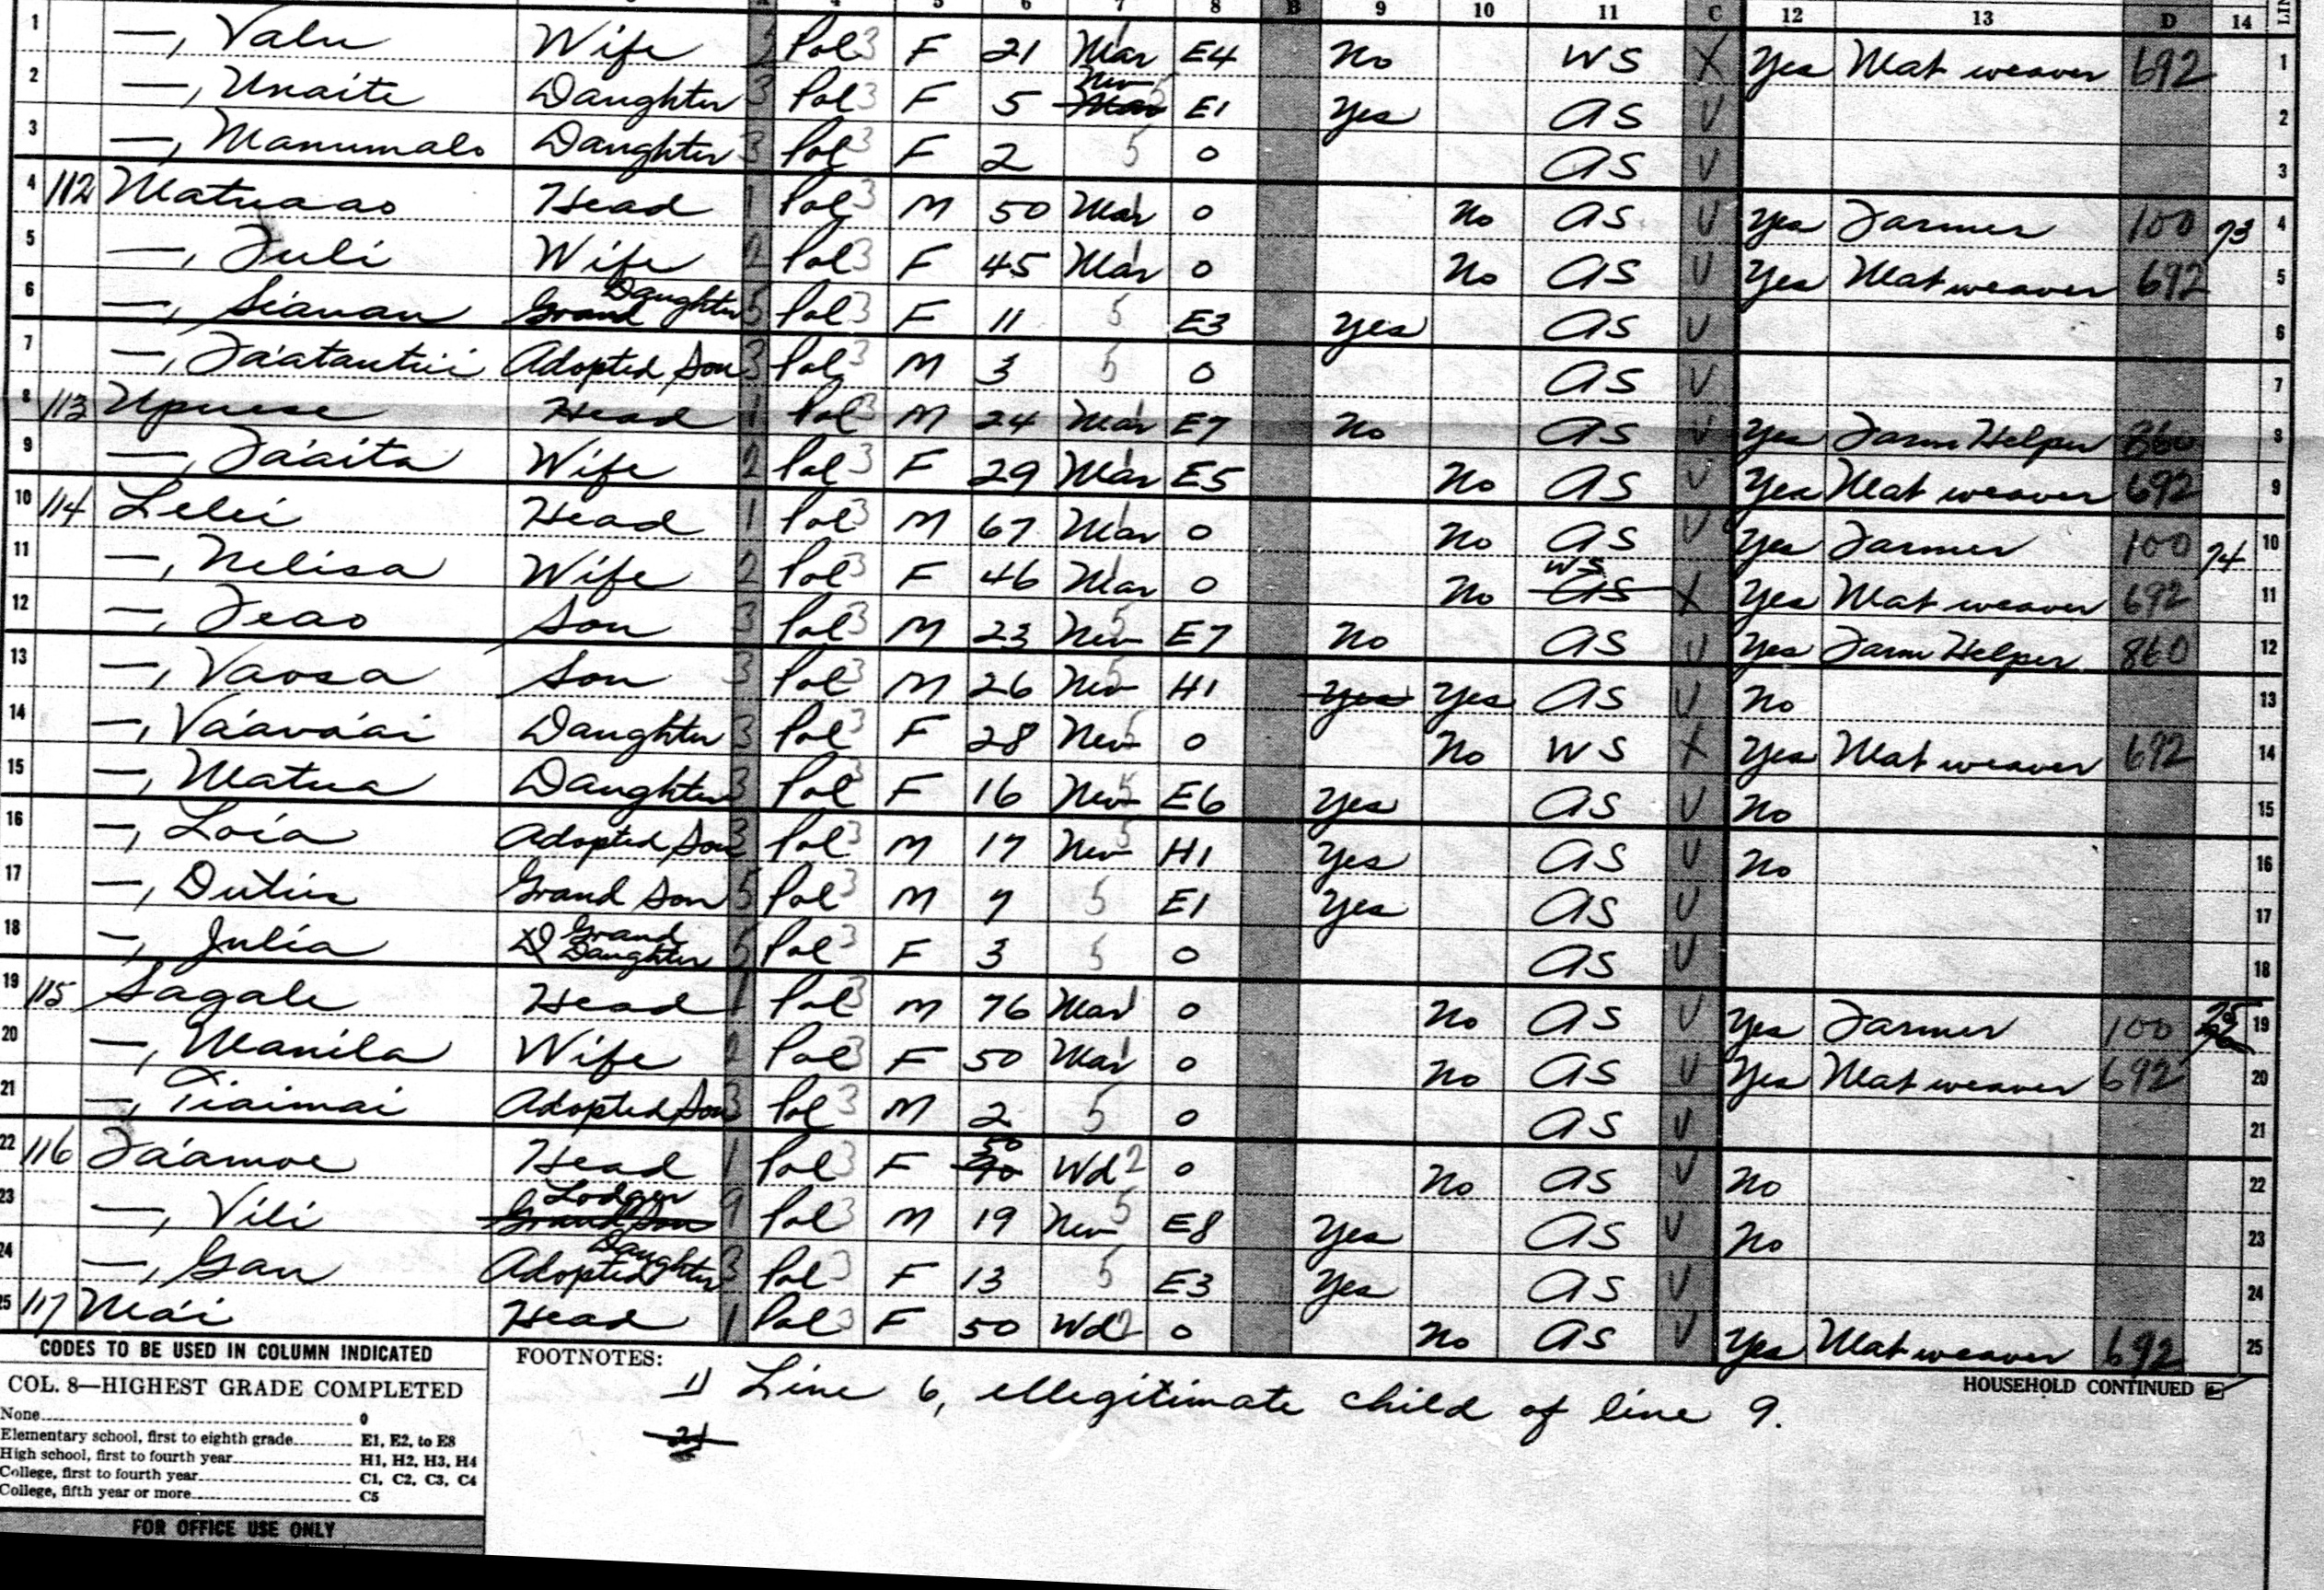 4 5 6 7 8 B 9 10 11 C 12 13 D 14
1 —, Valu Wife Pol 3 F 21 Mar E4 No WS X Yes Mat weaver 692 1
2 —, Unaite Daughter 3 Pol 3 F 5 Nev 5 E1 Yes AS V 2
3 —, Manumalo Daughter 3 Pol 3 F 2 5 0 AS V 3
4 112 Matuaao Head 1 Pol 3 M 50 Mar 0 No AS V Yes Farmer 100 73 4
5 —, Fuli Wife 2 Pol 3 F 45 Mar 0 No AS V Yes Mat weaver 692 5
6 —, Siauau Grand Daughter 5 Pol 3 F 11 5 E3 Yes AS V 6
7 —, Fa'atautu'i Adopted Son 3 Pol 3 M 3 5 0 AS V 7
8 113 Upuese Head 1 Pol 3 M 24 Mar E7 No AS V Yes Farm Helper 860 8
9 —, Fa'aita Wife 2 Pol 3 F 29 Mar E5 No AS V Yes Mat weaver 692 9
10 114 Lelei Head 1 Pol 3 M 67 Mar 0 No AS V Yes Farmer 100 74 10
11 —, Nelisa Wife 2 Pol 3 F 46 Mar 0 No WS AS X Yes Mat weaver 692 11
12 —, Feao Son 3 Pol 3 M 23 Nev 5 E7 No AS V Yes Farm Helper 860 12
13 —, Vaosa Son 3 Pol 3 M 26 Nev 5 H1 Yes Yes AS V No 13
14 —, Va'ava'ai Daughter 3 Pol 3 F 28 Nev 5 0 No WS X Yes Mat weaver 692 14
15 —, Matua Daughter 3 Pol 3 F 16 Nev 5 E6 Yes AS V No 15
16 —, Loia Adopted Son 3 Pol 3 M 17 Nev 5 H1 Yes AS V No 16
17 —, Grand Son 5 Pol 3 M 7 5 E1 Yes AS V 17
18 —, Julia Grand Daughter 5 Pol 3 F 3 5 0 AS V 18
19 115 Sagale Head 1 Pol 3 M 76 Mar 1 0 No AS V Yes Farmer 100 75 19
20 —, Manila Wife 2 Pol 3 F 50 Mar 1 0 No AS V Yes Mat weaver 692 20
21 —, Tiaimai Adopted Son 3 Pol 3 M 2 5 0 AS V 21
22 116 Fa'amoe Head 1 Pol 3 F 50 Wd 2 0 No AS V No 22
23 —, Vili Lodger Grand Son 9 Pol 3 M 19 Nev 5 E8 Yes AS V No 23
24 —, Gau Adopted Daughter 3 Pol 3 F 13 5 E3 Yes AS V 24
25 117 Ma'i Head 1 Pol 3 F 50 Wd 2 0 No AS V Yes Mat weaver 692 25
CODES TO BE USED IN COLUMN INDICATED
COL. 8—HIGHEST GRADE COMPLETED
None 0
Elementary school, first to eighth grade E1, E2, to E8
High school, first to fourth year H1, H2, H3, H4
College, first to fourth year C1, C2, C3, C4
College, fifth year or more C5
FOR OFFICE USE ONLY
FOOTNOTES:
1) Line 6, ellegitimate child of line 9.
2)
HOUSEHOLD CONTINUED